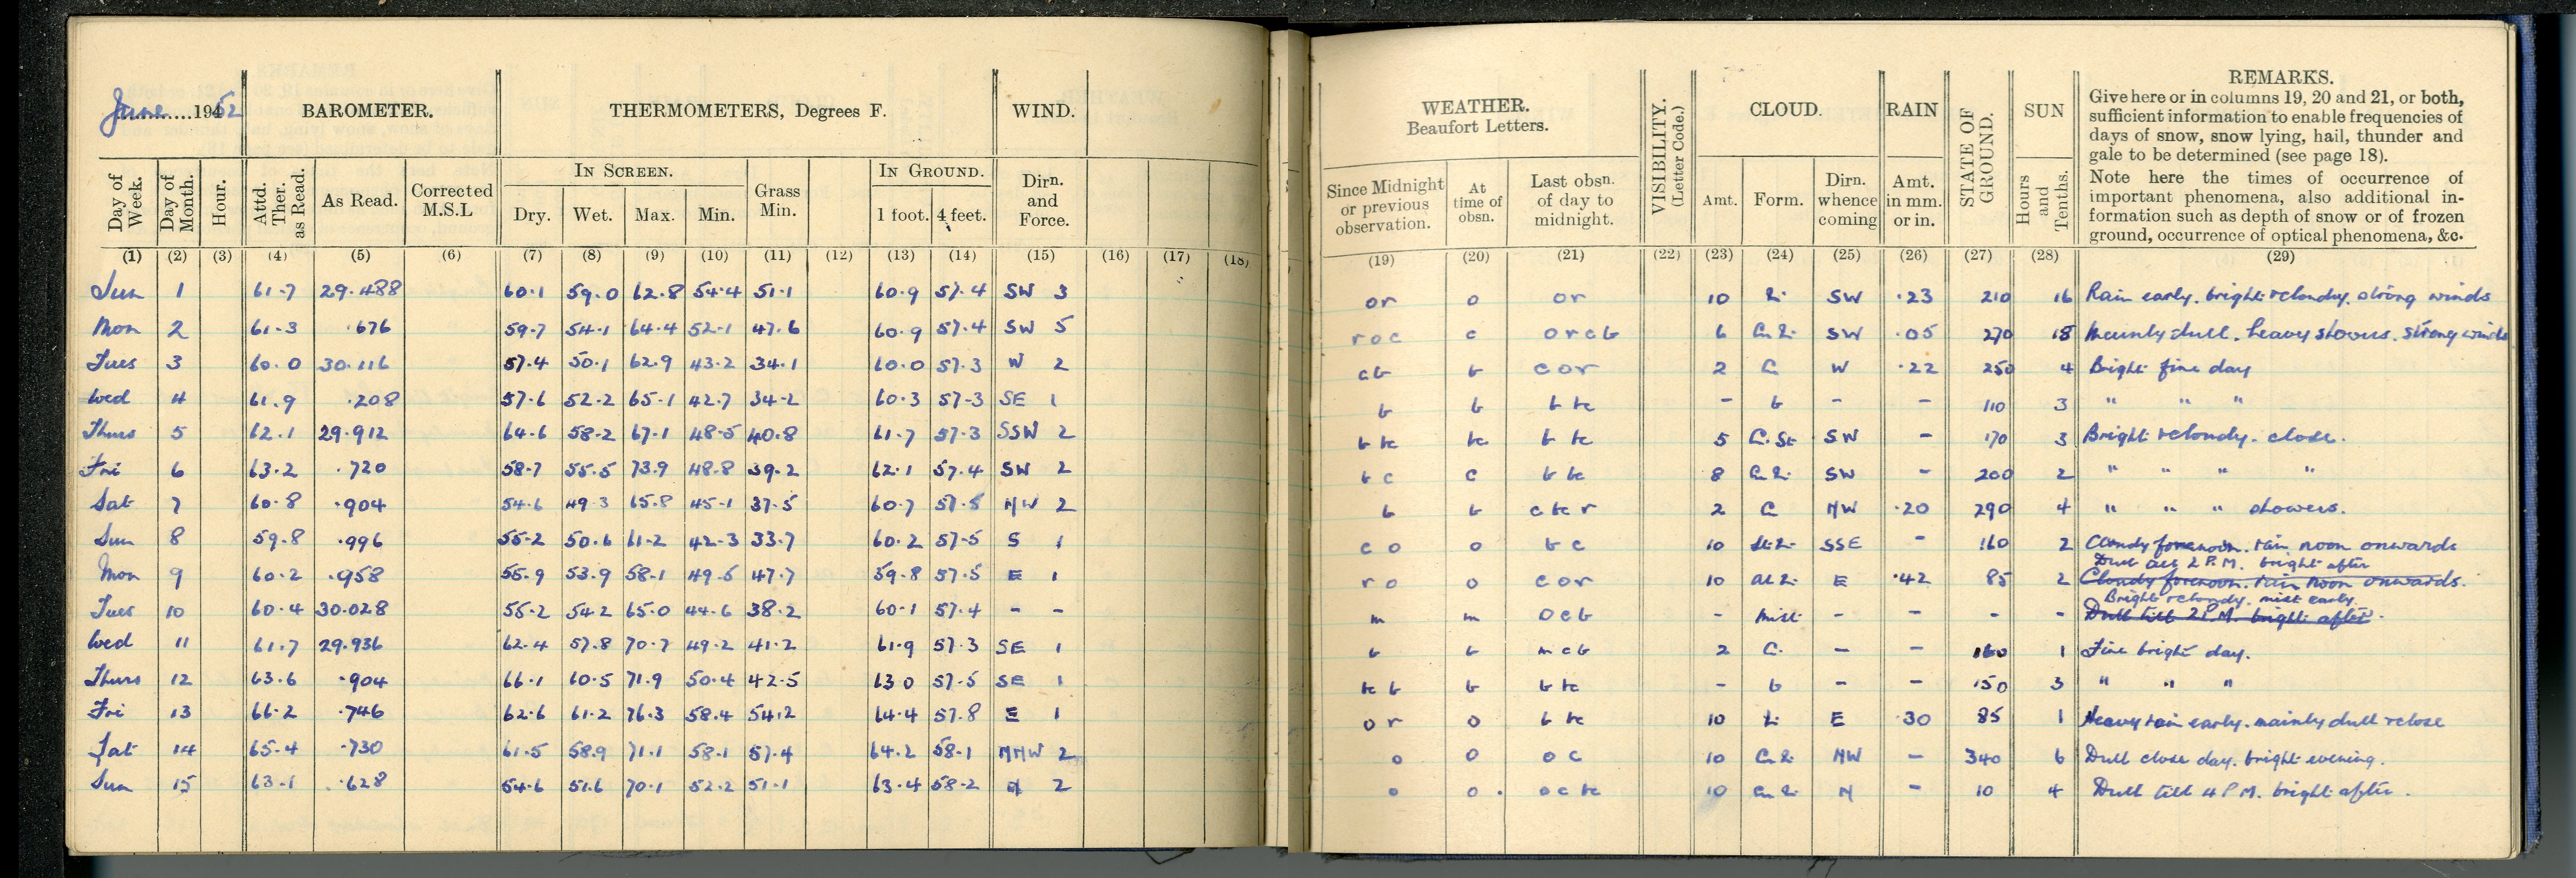 June 1952 BAROMETER. THERMOMETERS, Degrees F. WIND.
Day of Week. Day of Month. Hour. Attd. Ther. as Read. As Read. Corrected M.S.L IN SCREEN. Dry. Wet. Max. Min. Grass Min. IN GROUND. 1 foot. 4 feet. Dirn. and Force.
(1) (2) (3) (4) (5) (6) (7) (8) (9) (10) (11) (12) (13) (14) (15) (16) (17) (18)
Sun 1 61.7 29.488 60.1 59.0 62.8 54.4 51.1 60.9 57.4 SW 3
Mon 2 61.3 .676 59.7 54.1 64.4 52.1 47.6 60.9 57.4 SW 5
Tues 3 60.0 30.116 57.4 50.1 62.9 43.2 34.1 60.0 57.3 W 2
Wed 4 61.9 .208 57.6 52.2 65.1 42.7 34.2 60.3 57.3 SE 1
Thurs 5 62.1 29.912 64.6 58.2 67.1 48.5 40.8 61.7 57.3 SSW 2
Fri 6 63.2 .720 58.7 55.5 73.9 48.8 39.2 62.1 57.4 SW 2
Sat 7 60.8 .904 54.6 49.3 65.8 45.1 37.5 60.7 57.5 NW 2
Sun 8 59.8 .996 55.2 50.6 61.2 42.3 33.7 60.2 57.5 S 1
Mon 9 60.2 .958 55.9 53.9 58.1 49.5 47.7 59.8 57.5 E 1
Tues 10 60.4 30.028 55.2 54.2 65.0 44.6 38.2 60.1 57.4 - -
Wed 11 61.7 29.936 62.4 57.8 70.7 49.2 41.2 61.9 57.3 SE 1
Thurs 12 63.6 .904 66.1 60.5 71.9 50.4 42.5 63.0 57.5 SE 1
Fri 13 66.2 .746 62.6 61.2 76.3 58.4 54.2 64.4 57.8 E 1
Sat 14 65.4 .730 61.5 58.9 71.1 58.1 57.4 64.2 58.1 NNW 2
Sun 15 63.1 .628 54.6 51.6 70.1 52.2 51.1 63.4 58.2 N 2
WEATHER. Beaufort Letters. VISIBILITY. (Letter Code.) CLOUD. RAIN STATE OF GROUND. SUN REMARKS.
Give here or in columns 19, 20 and 21, or both,
sufficient information to enable frequencies of
days of snow, snow lying, hail, thunder and
gale to be determined (see page 18).
Note here the times of occurrence of
important phenomena, also additional in-
formation such as depth of snow or of frozen
ground, occurrence of optical phenomena, &c.
Since Midnight or previous observation. At time of obsn. Last obsn. of day to midnight. Amt. Form. Dirn. whence coming Amt. in mm. or in. Hours and Tenths.
(19) (20) (21) (22) (23) (24) (25) (26) (27) (28) (29)
or o or 10 SW .23 210 16 Rain early. bright & cloudy. strong winds
roc c orcb 6 SW .05 270 18 Mainly dull. heavy showers. strong winds
cb b cor 2 C W .22 250 4 Bright fine day
b b b bc - b - - 110 3 " " "
b bc bc b bc 5 C. St SW - 170 3 Bright & cloudy. close.
bc c b bc 8 SW - 200 2 " " " "
b b cbr 2 C NW .20 290 4 " " " showers.
co o bc 10 SSE - 160 2 Cloudy forenoon. rain noon onwards
ro o cor 10 E .42 85 2 Dull till 2 P.M. bright after
Cloudy forenoon. rain noon onwards.
m m ocb - Mist - - - - Bright & cloudy. mist early
Dull till 2 P.M. bright after.
b b mcb 2 C. - - 160 1 Fine bright day.
bc b b b bc - b - - 150 3 " " "
or o b bc 10 E .30 85 1 Heavy rain early. mainly dull & close
o o oc 10 NW - 340 6 Dull close day. bright evening.
o o. oc bc 10 N - 10 4 Dull till 4 P.M. bright after.